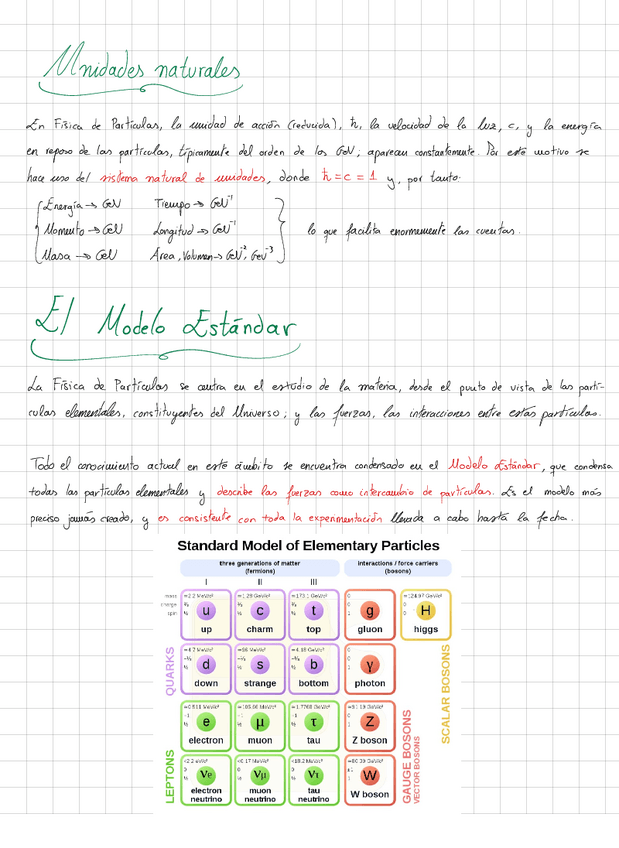 Unidades naturales
En Física de Partículas, la unidad de acción (reducida), ħ, la velocidad de la luz, c, y la energía
en reposo de las partículas, típicamente del orden de los GeV; aparecen constantemente. Por este motivo se
hace uso del sistema natural de unidades, donde ħ = c = 1 y, por tanto:
Energía → GeV Tiempo → GeV⁻¹
Momento → GeV Longitud → GeV⁻¹ lo que facilita enormemente las cuentas.
Masa → GeV Área, Volumen → GeV⁻², GeV⁻³
El Modelo Estándar
La Física de Partículas se centra en el estudio de la materia, desde el punto de vista de las partí-
culas elementales, constituyentes del Universo; y las fuerzas, las interacciones entre estas partículas.
Todo el conocimiento actual en este ámbito se encuentra condensado en el Modelo Estándar, que condensa
todas las partículas elementales y describe las fuerzas como intercambio de partículas. Es el modelo más
preciso jamás creado, y es consistente con toda la experimentación llevada a cabo hasta la fecha.
Standard Model of Elementary Particles
three generations of matter
(fermions)
interactions / force carriers
(bosons)
I II III
mass
charge
spin
u
up
c
charm
t
top
g
gluon
H
higgs
QUARKS
d
down
s
strange
b
bottom
γ
photon
SCALAR BOSONS
e
electron
μ
muon
τ
tau
Z
Z boson
LEPTONS
νe
electron
neutrino
νμ
muon
neutrino
ντ
tau
neutrino
W
W boson
GAUGE BOSONS
VECTOR BOSONS